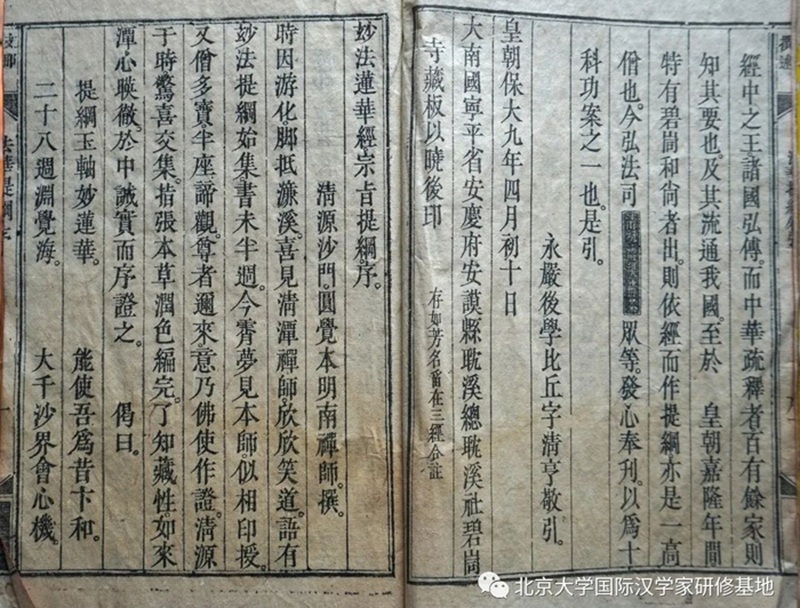 經中之王諸國弘傳。而中華疏釋者百有餘家則
知其要也。及其流通我國。至於 皇朝嘉隆年間
特有碧崗和尙者出。則依經而作提綱亦是一高
僧也。今弘法司 眾等。發心奉刊。以爲十
科功案之一也。是引。
永嚴後學比丘字清亨敬引。
皇朝保大九年四月初十日
大南國寧平省安慶府安謨縣耽溪總耽溪社碧崗
寺藏板以曉後印
存如芳名畱在三經合註
妙法蓮華經宗旨提綱。序。
清源沙門。圓覺本明南禪師。撰。
時因游化。脚抵濂溪。喜見清潭禪師。欣欣笑道。語有
妙法提綱。始集書未半週。今霄夢見本師。似相印授。
又僧多寶半座。諦觀。尊者邇來。意乃佛使作證。清源
于時驚喜交集。揩張本草。潤色編完。了知藏性。如來
潭心映徹。於中誠實而序證之。 偈曰。
提綱玉軸妙蓮華。 能使吾爲昔卞和。
二十八週淵覺海。 大千沙界會心機。
法華提綱序
北京大学国际汉学家研修基地